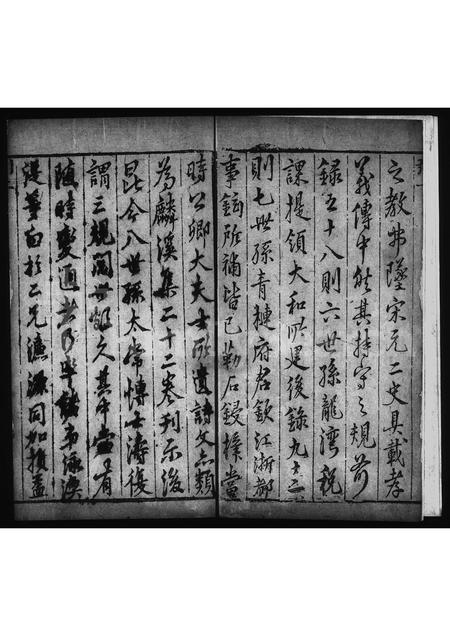 之教弗墜宋元二史具載孝
義傳中然其持守之規前
錄五十八則六世孫龍灣稅
課提領大和所建後錄九十二
則七世孫青槤府君欽江浙都
事鉉所補皆已勒石鋟樸當
時公卿大夫士所遺詩文亦類
為麟溪集二十二卷刊示後
昆今八世孫太常博士濤復
謂三規閱世頗久其中當有
隨時變通者乃率諸弟泳澳
湜等白於二兄濂源同加損益